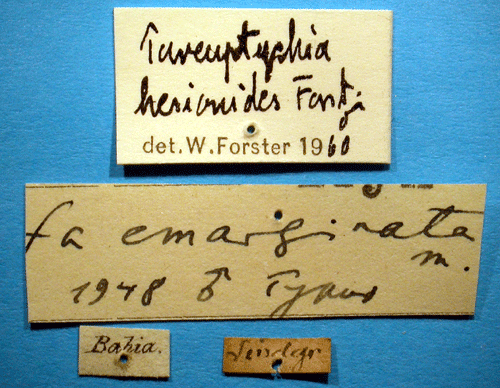 Tareuptychia
hesionides Forst.
det. W. Forster 1960
fa emarginata
m.
1948 ♂ Typus
Bahia.